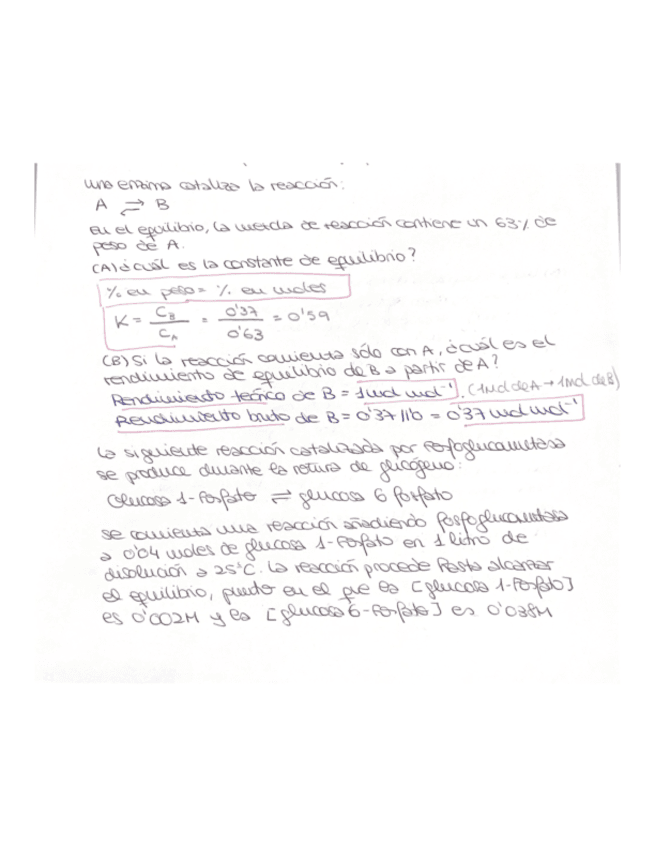 una enzima cataliza la reacción:
A ⇌ B
En el equilibrio, la mezcla de reacción contiene un 63% de
peso de A.
(A) ¿cuál es la constante de equilibrio?
% en peso = % en moles
K = C_B / C_A = 0'37 / 0'63 = 0'59
(B) Si la reacción comienza sólo con A, ¿cuál es el
rendimiento de equilibrio de B a partir de A?
Rendimiento teórico de B = 1 mol mol⁻¹. (1 mol de A → 1 mol de B)
Rendimiento bruto de B = 0'37/1'0 = 0'37 mol mol⁻¹
La siguiente reacción catalizada por fosfoglucomutasa
se produce durante la rotura de glicógeno:
Glucosa 1-fosfato ⇌ glucosa 6 fosfato
se comienza una reacción añadiendo fosfoglucomutasa
a 0'04 moles de glucosa 1-fosfato en 1 litro de
disolución a 25°C. La reacción procede hasta alcanzar
el equilibrio, punto en el que la [glucosa 1-fosfato]
es 0'002M y la [glucosa 6-fosfato] es 0'038M